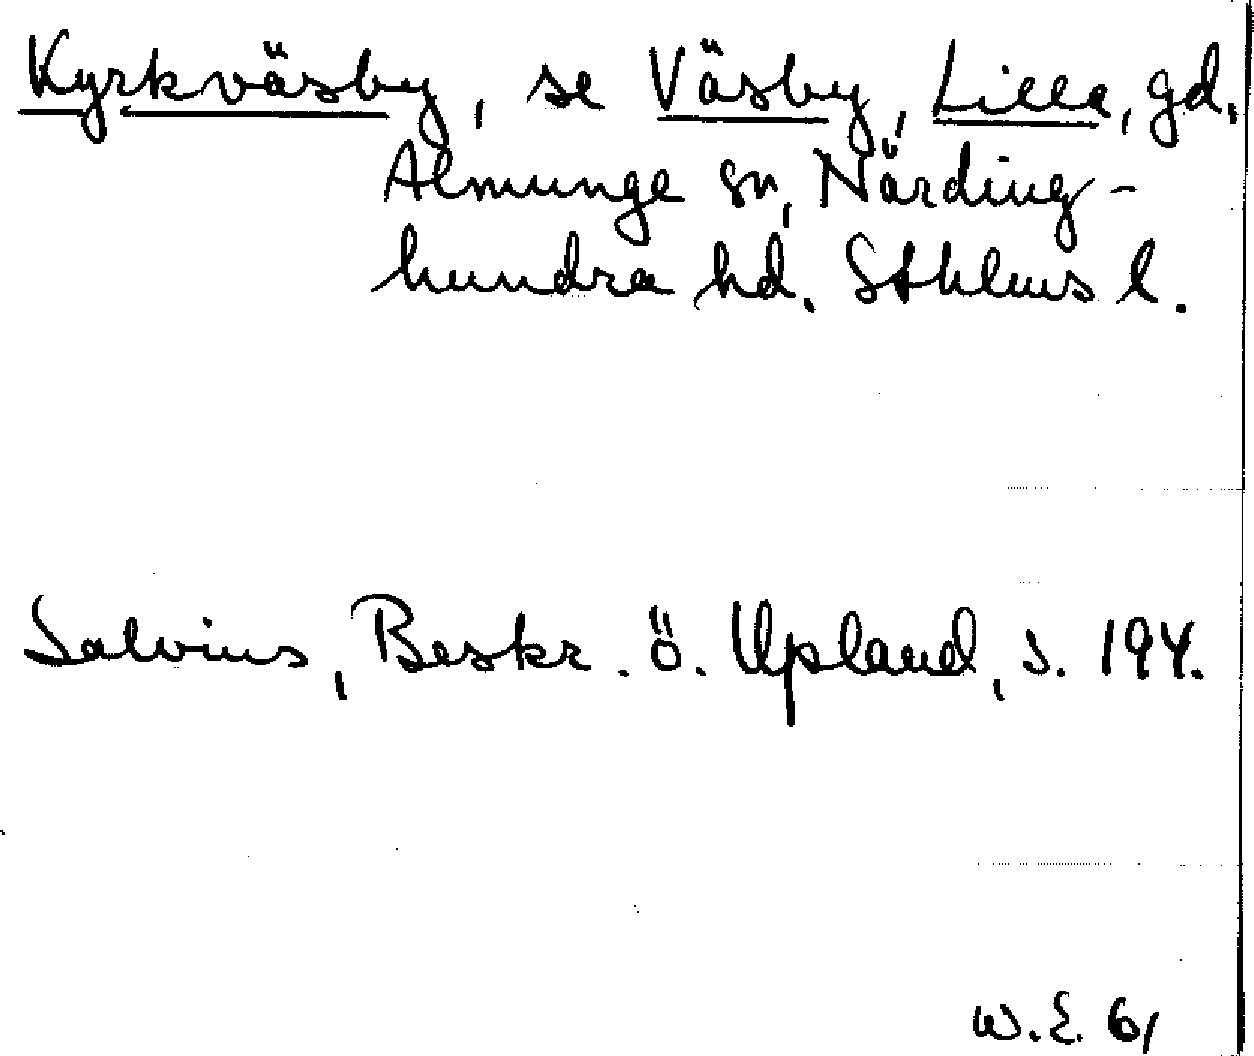 Kyrkväsby, se Väsby, Lilla, gd,
Almunge sn, Närding-
hundra hd. Sthlms l.
Salvius, Beskr. ö. Upland, s. 194.
W.E. 61